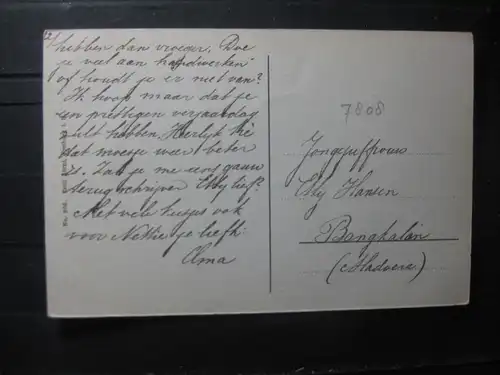 2)
hebben dan vroeger. Doe
je veel aan handwerken
of houdt je er niet van?
Ik hoop maar dat je
een prettigen verjaardag
zult hebben. Heerlijk hè
dat moesje weer beter
is. Zal je me eens gauw
terug schrijven Etty lief?
Met vele kusjes ook
voor Nettie je liefh:
Oma
7808
Jongejuffrouw
Etty Hansen
Bangkalan
(Madoera)